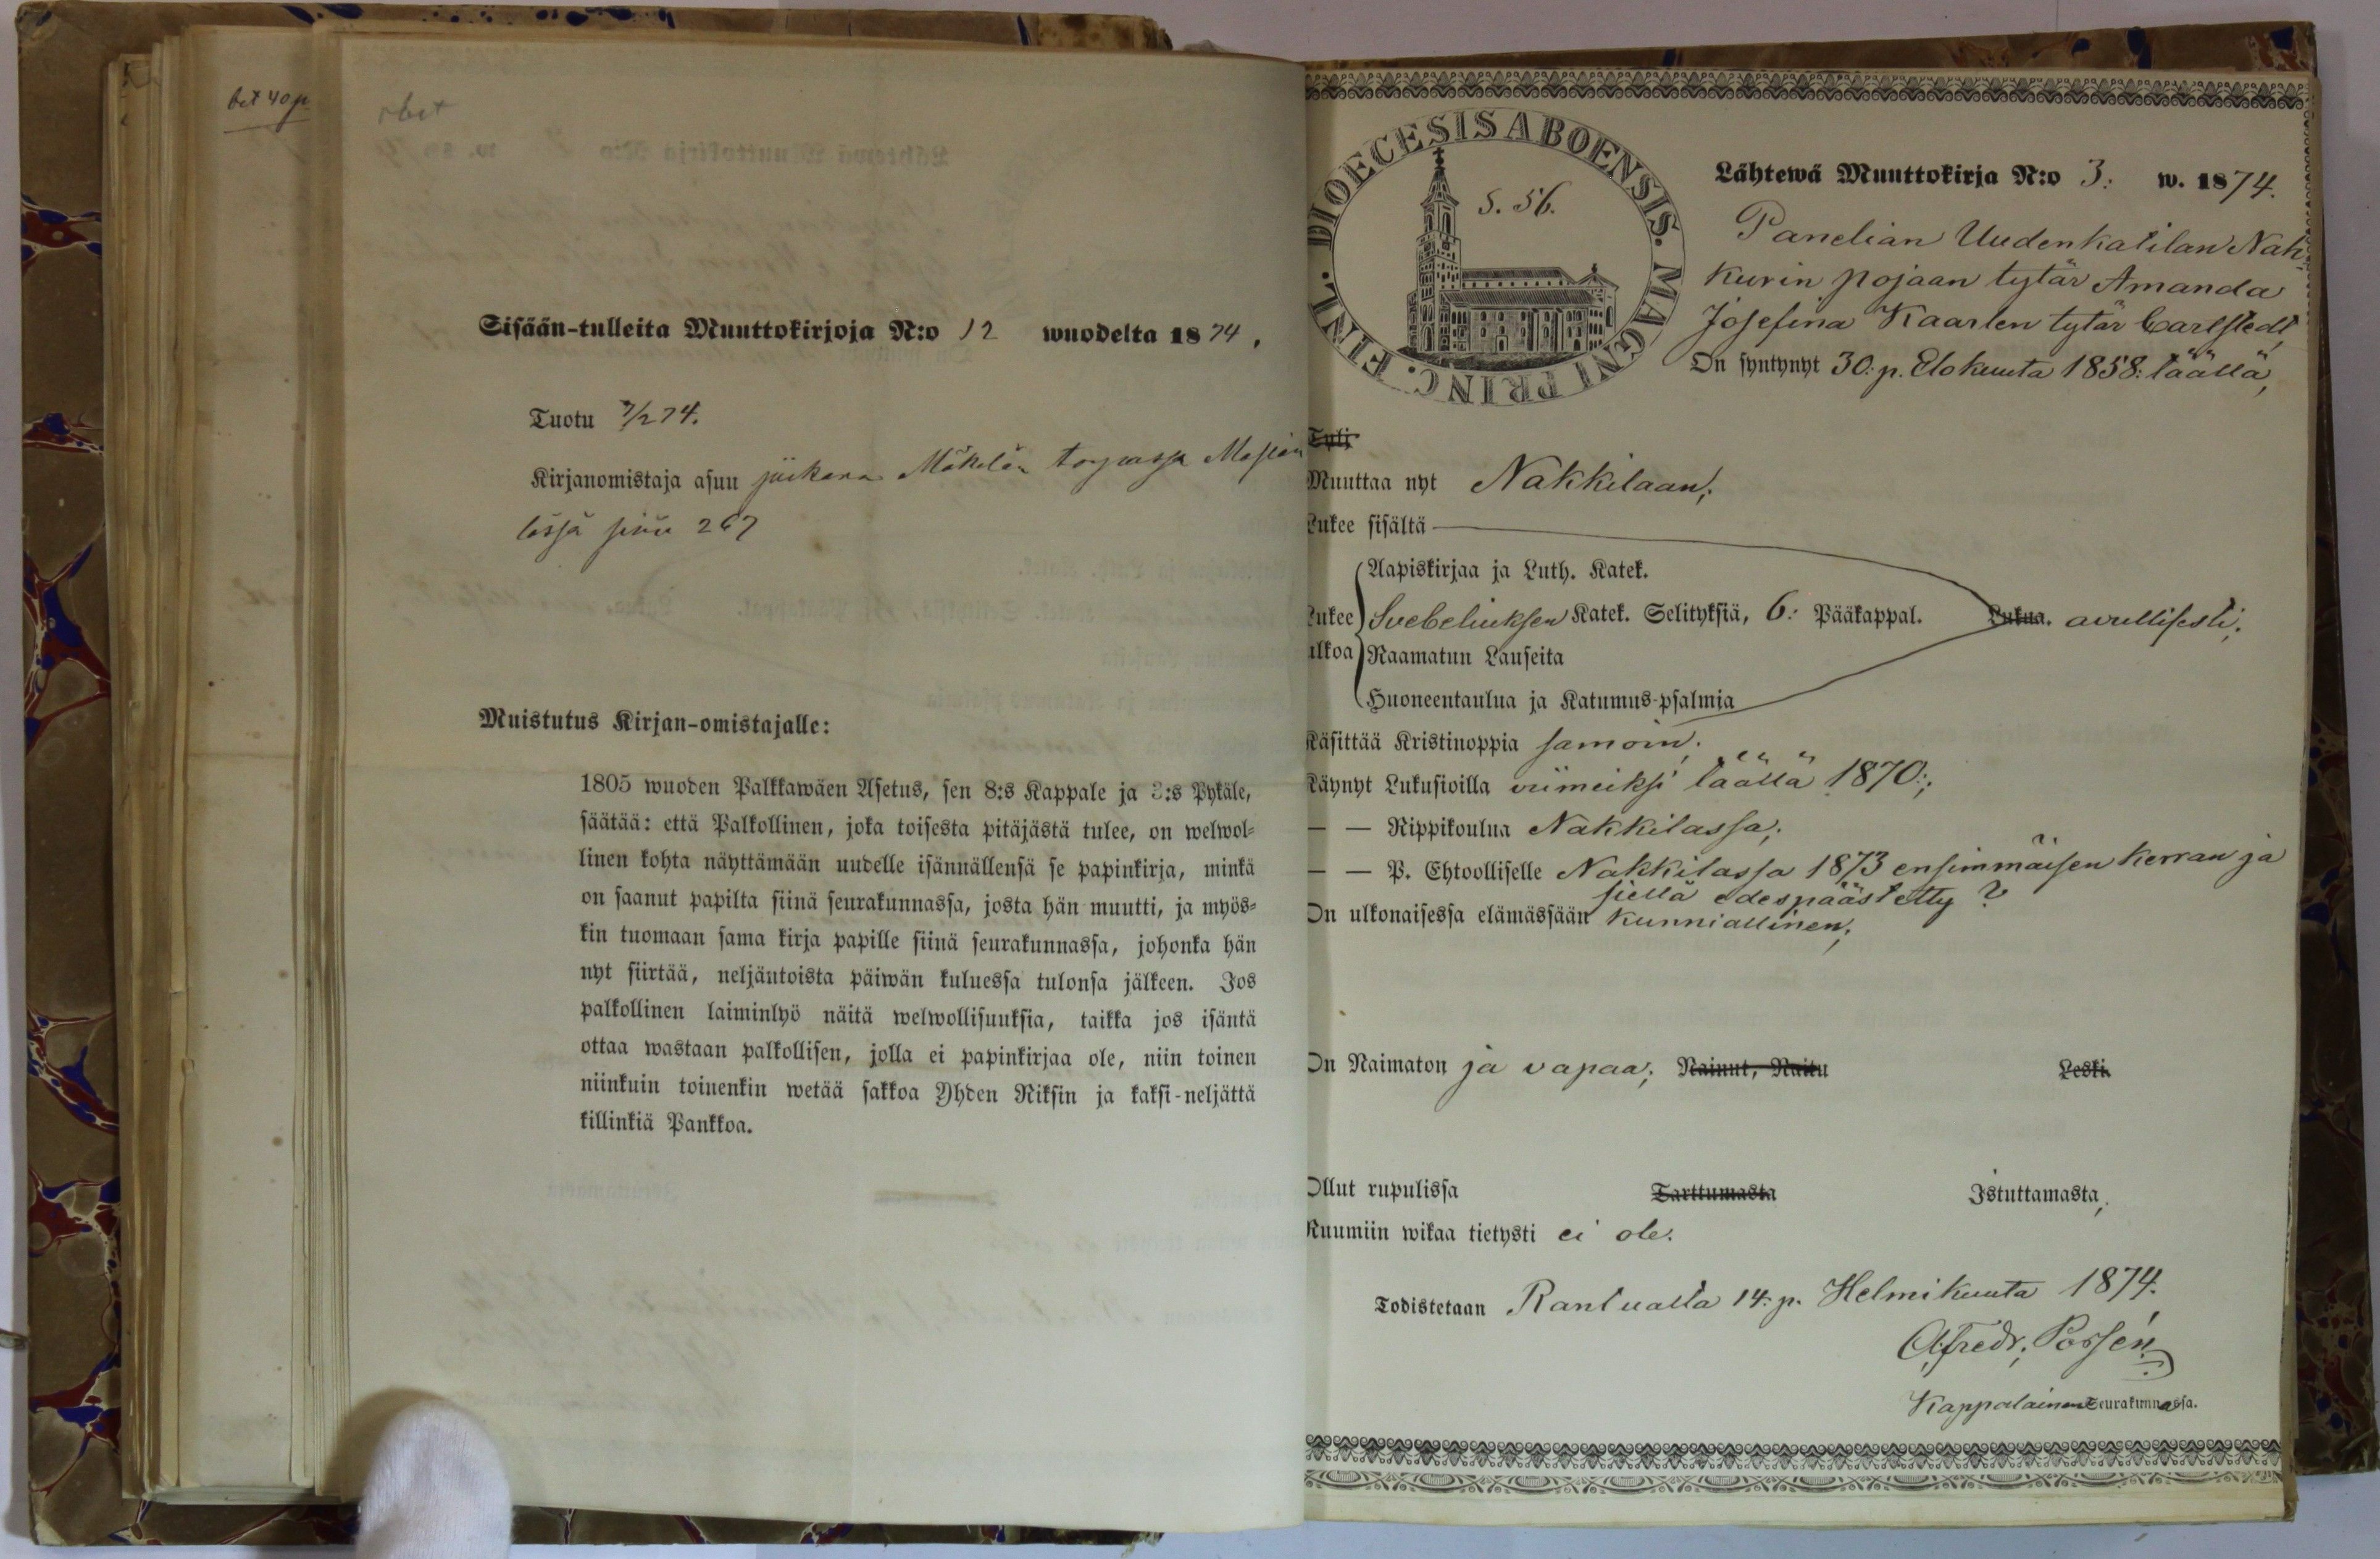 bet 40 p
bet
Sisään-tulleita Muuttokirjoja N:o 12 wuodelta 1874.
Tuotu 7/2 74.
Kirjanomistaja asuu Mäkelän torpassa
lässä sivu 267
Muistutus Kirjan-omistajalle:
1805 wuoden Palkkawäen Asetus, sen 8:s Kappale ja 3:s Pykäle,
säätää: että Palkollinen, joka toisesta pitäjästä tulee, on welwol-
linen kohta näyttämään uudelle isännällensä se papinkirja, minkä
on saanut papilta siinä seurakunnassa, josta hän muutti, ja myös-
kin tuomaan sama kirja papille siinä seurakunnassa, johonka hän
nyt siirtää, neljäntoista päiwän kuluessa tulonsa jälkeen. Jos
palkollinen laiminlyö näitä welwollisuuksia, taikka jos isäntä
ottaa wastaan palkollisen, jolla ei papinkirjaa ole, niin toinen
niinkuin toinenkin wetää sakkoa Yhden Riksin ja kaksi-neljättä
killinkiä Pankkoa.
DIOECESIS ABOENSIS. MAGNI PRINC. FINL.
S. 56.
Lähtewä Muuttokirja N:o 3: w. 1874.
Panelian Uudenkatilan Nah
kurin pojaan tytär Amanda
Josefina Kaarlen tytär Carlstedt,
On syntynyt 30: p. Elokuuta 1858: täällä,
Tuli
Muuttaa nyt Nakkilaan;
Lukee sisältä
Aapiskirjaa ja Luth. Katek.
Lukee Svebeliuksen Katek. Selityksiä, 6: Pääkappal. Lukua. avullisesti;
ulkoa Raamatun Lauseita
Huoneentaulua ja Katumus-psalmia
Käsittää Kristinoppia samoin;
Käynyt Lukusioilla viimeiksi täällä 1870:;
— — Rippikoulua Nakkilassa;
— — P. Ehtoolliselle Nakkilassa 1873 ensimmäisen kerran ja
siellä edespäästetty ?
On ulkonaisessa elämässään kunniallinen;
On Naimaton ja vapaa; Nainut, Naitu Leski.
Ollut rupulissa Tarttumasta Istuttamasta;
Ruumiin wikaa tietysti ei ole.
Todistetaan Rantualla 14: p. Helmikuuta 1874.
Alfredr. Possén
Kappalainen Seurakunnassa.